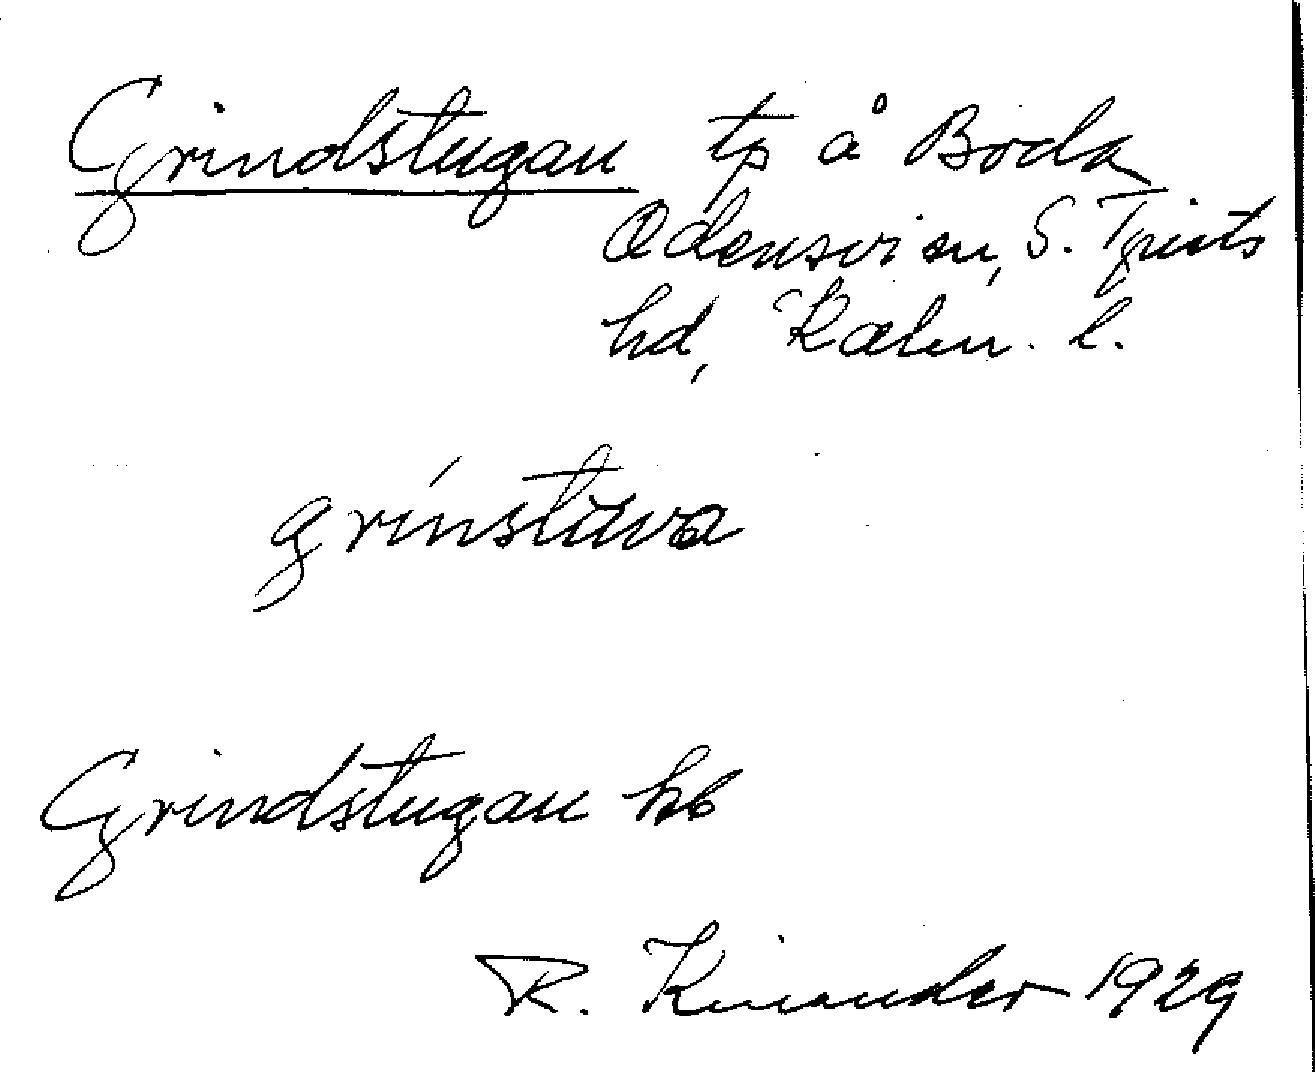 Grindstugan tp å Boda
Odensvi sn, S. Tjusts
hd, Kalm. l.
grínstuva
Grindstugan hb
R. Kinander 1929